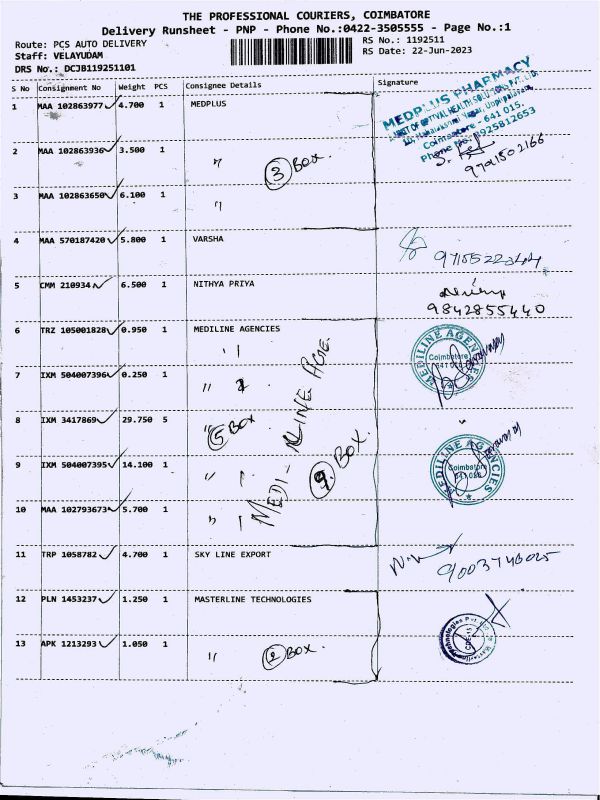 THE PROFESSIONAL COURIERS, COIMBATORE
Delivery Runsheet - PNP - Phone No.:0422-3505555 - Page No.:1
Route: PCS AUTO DELIVERY
RS No.: 1192511
Staff: VELAYUDAM
RS Date: 22-Jun-2023
DRS No.: DCJB119251101
S No Consignment No Weight PCS Consignee Details Signature
1 MAA 102863977 4.700 1 MEDPLUS
MEDPLUS PHARMACY
Coimbatore - 641 015.
Phone No: 8925812653
9791502166
2 MAA 102863936 3.500 1 〃
3 BOX.
3 MAA 102863650 6.100 1 〃
4 MAA 570187420 5.800 1 VARSHA
5 CMM 210934 6.500 1 NITHYA PRIYA
9842855440
6 TRZ 105001828 0.950 1 MEDILINE AGENCIES
〃 1
MEDILINE AGENCIES
Coimbatore
7 IXM 504007396 0.250 1
〃 1
8 IXM 3417869 29.750 5
〃
5 BOX
9 IXM 504007395 14.100 1
〃 1
MEDILINE AGENCIES
Coimbatore
10 MAA 102793673 5.700 1
〃 1
MEDI-LINE AGE.
9. BOX.
11 TRP 1058782 4.700 1 SKY LINE EXPORT
9003740025
12 PLN 1453237 1.250 1 MASTERLINE TECHNOLOGIES
13 APK 1213293 1.050 1
〃 2 BOX.